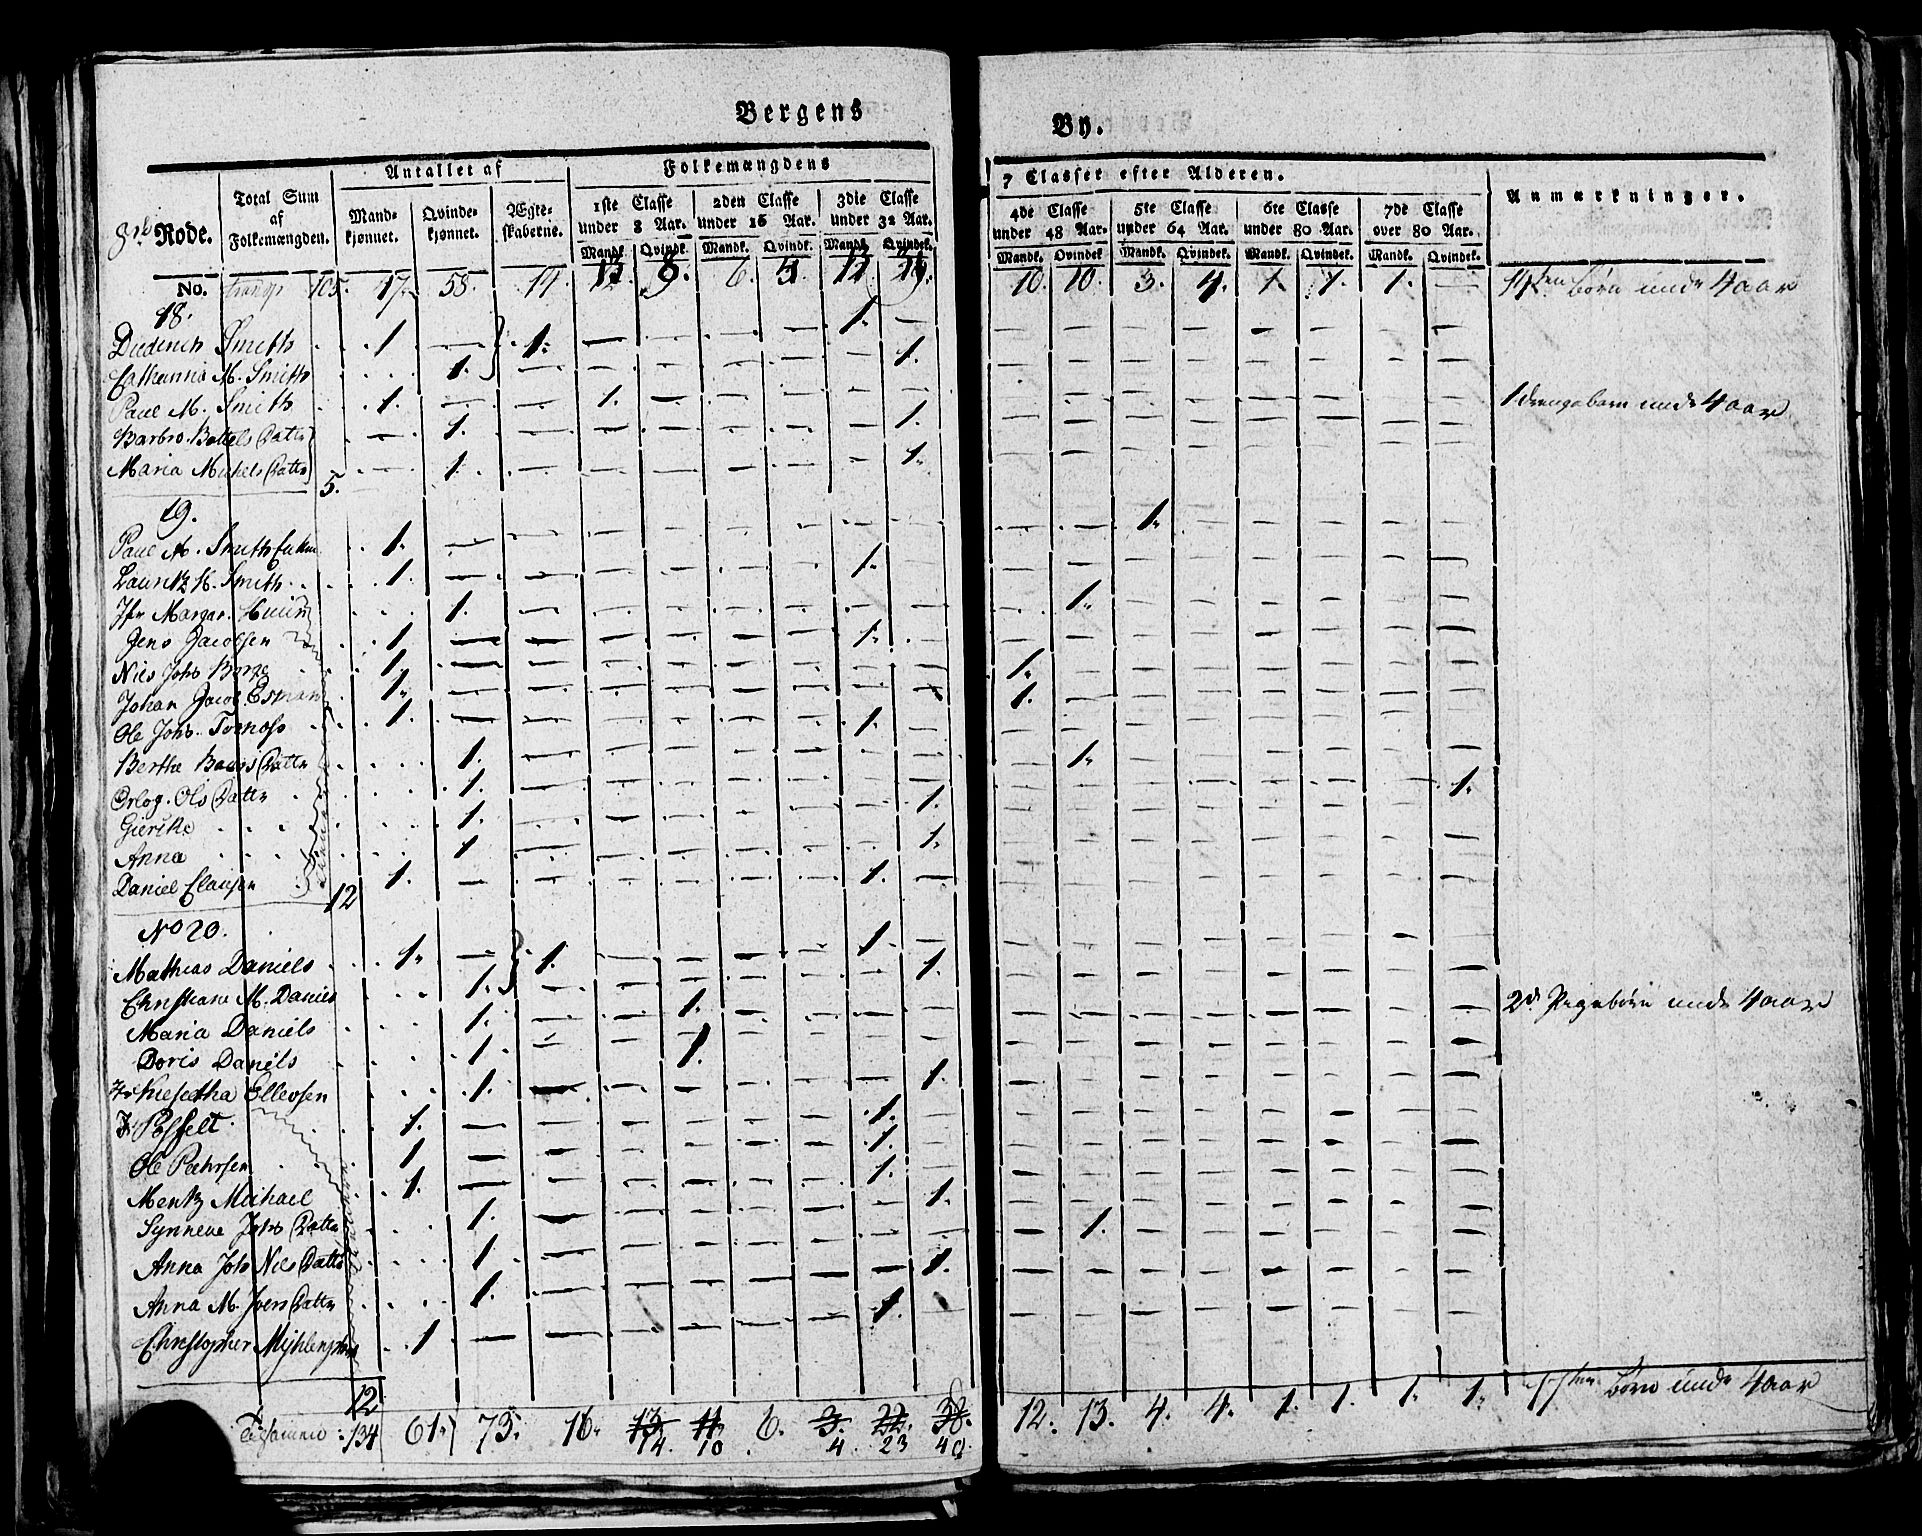 Bergens By.
Rode. Total Sum af Folkemængden. Antallet af Mandkjønnet. Qvindekjønnet. Ægteskaberne. Folkemængdens 7 Classer efter Alderen. Anmærkninger.
1ste Classe under 8 Aar. 2den Classe under 16 Aar. 3die Classe under 32 Aar. 4de Classe under 48 Aar. 5te Classe under 64 Aar. 6te Classe under 80 Aar. 7de Classe over 80 Aar.
Mandk. Qvindk. Mandk. Qvindk. Mandk. Qvindek. Mandk. Qvindek Mandk. Qvindek. Mandk. Qvindek. Mandk. Qvindek.
No. 105. 47. 58. 14 6. 10. 10. 3. 4. 1 1. 1. — børn under 4 aar
18.
Diederich Smith 1 — 1. 1. —
Cathanna M. Smith 1. — 1.
Paul M. Smith 1. — 1. 1 drengebarn under 4 aar
Barbro Bottels Datter 1. — 1.
Maria Michels Datter 1. — 1.
5.
19.
Paul M. Smith 1. — 1.
Lauritz H. Smith 1. — 1.
Jfr Margar. 1. — 1.
Jens Jacobsen 1. — 1.
Niels Johs 1. — 1.
Johan Jacob Esman 1. — 1.
Ole Johs. 1. — 1.
Berthe Datter 1. — 1.
Ols Datter 1. — 1.
Gierske 1. — 1.
Anna 1 — 1.
Daniel Clausen 1. — 1.
12
No 20.
Mathias Daniels 1. — 1. 1.
Christiane M. Daniels 1. — 1.
Maria Daniels 1. — 1. 2de Pigebørn under 4 aar
Doris Daniels 1. — 1.
Ellevsen 1. — 1.
Posselt 1. — 1.
Ole Pedersen 1 — 1.
Mentz Michael 1. — 1.
Synneve Johs Datter 1. — 1.
Anna Joh Niels Datter 1. — 1.
Anna M. Joers Datter 1. — 1.
Christopher 1. — 1.
12
Tilsammen 134 61. 73. 16. 13 14. 11 10 6. 3. 4. 22. 23 38. 40. 12. 13. 4. 4. 1. 1. 1. 1. børn under 4 aar